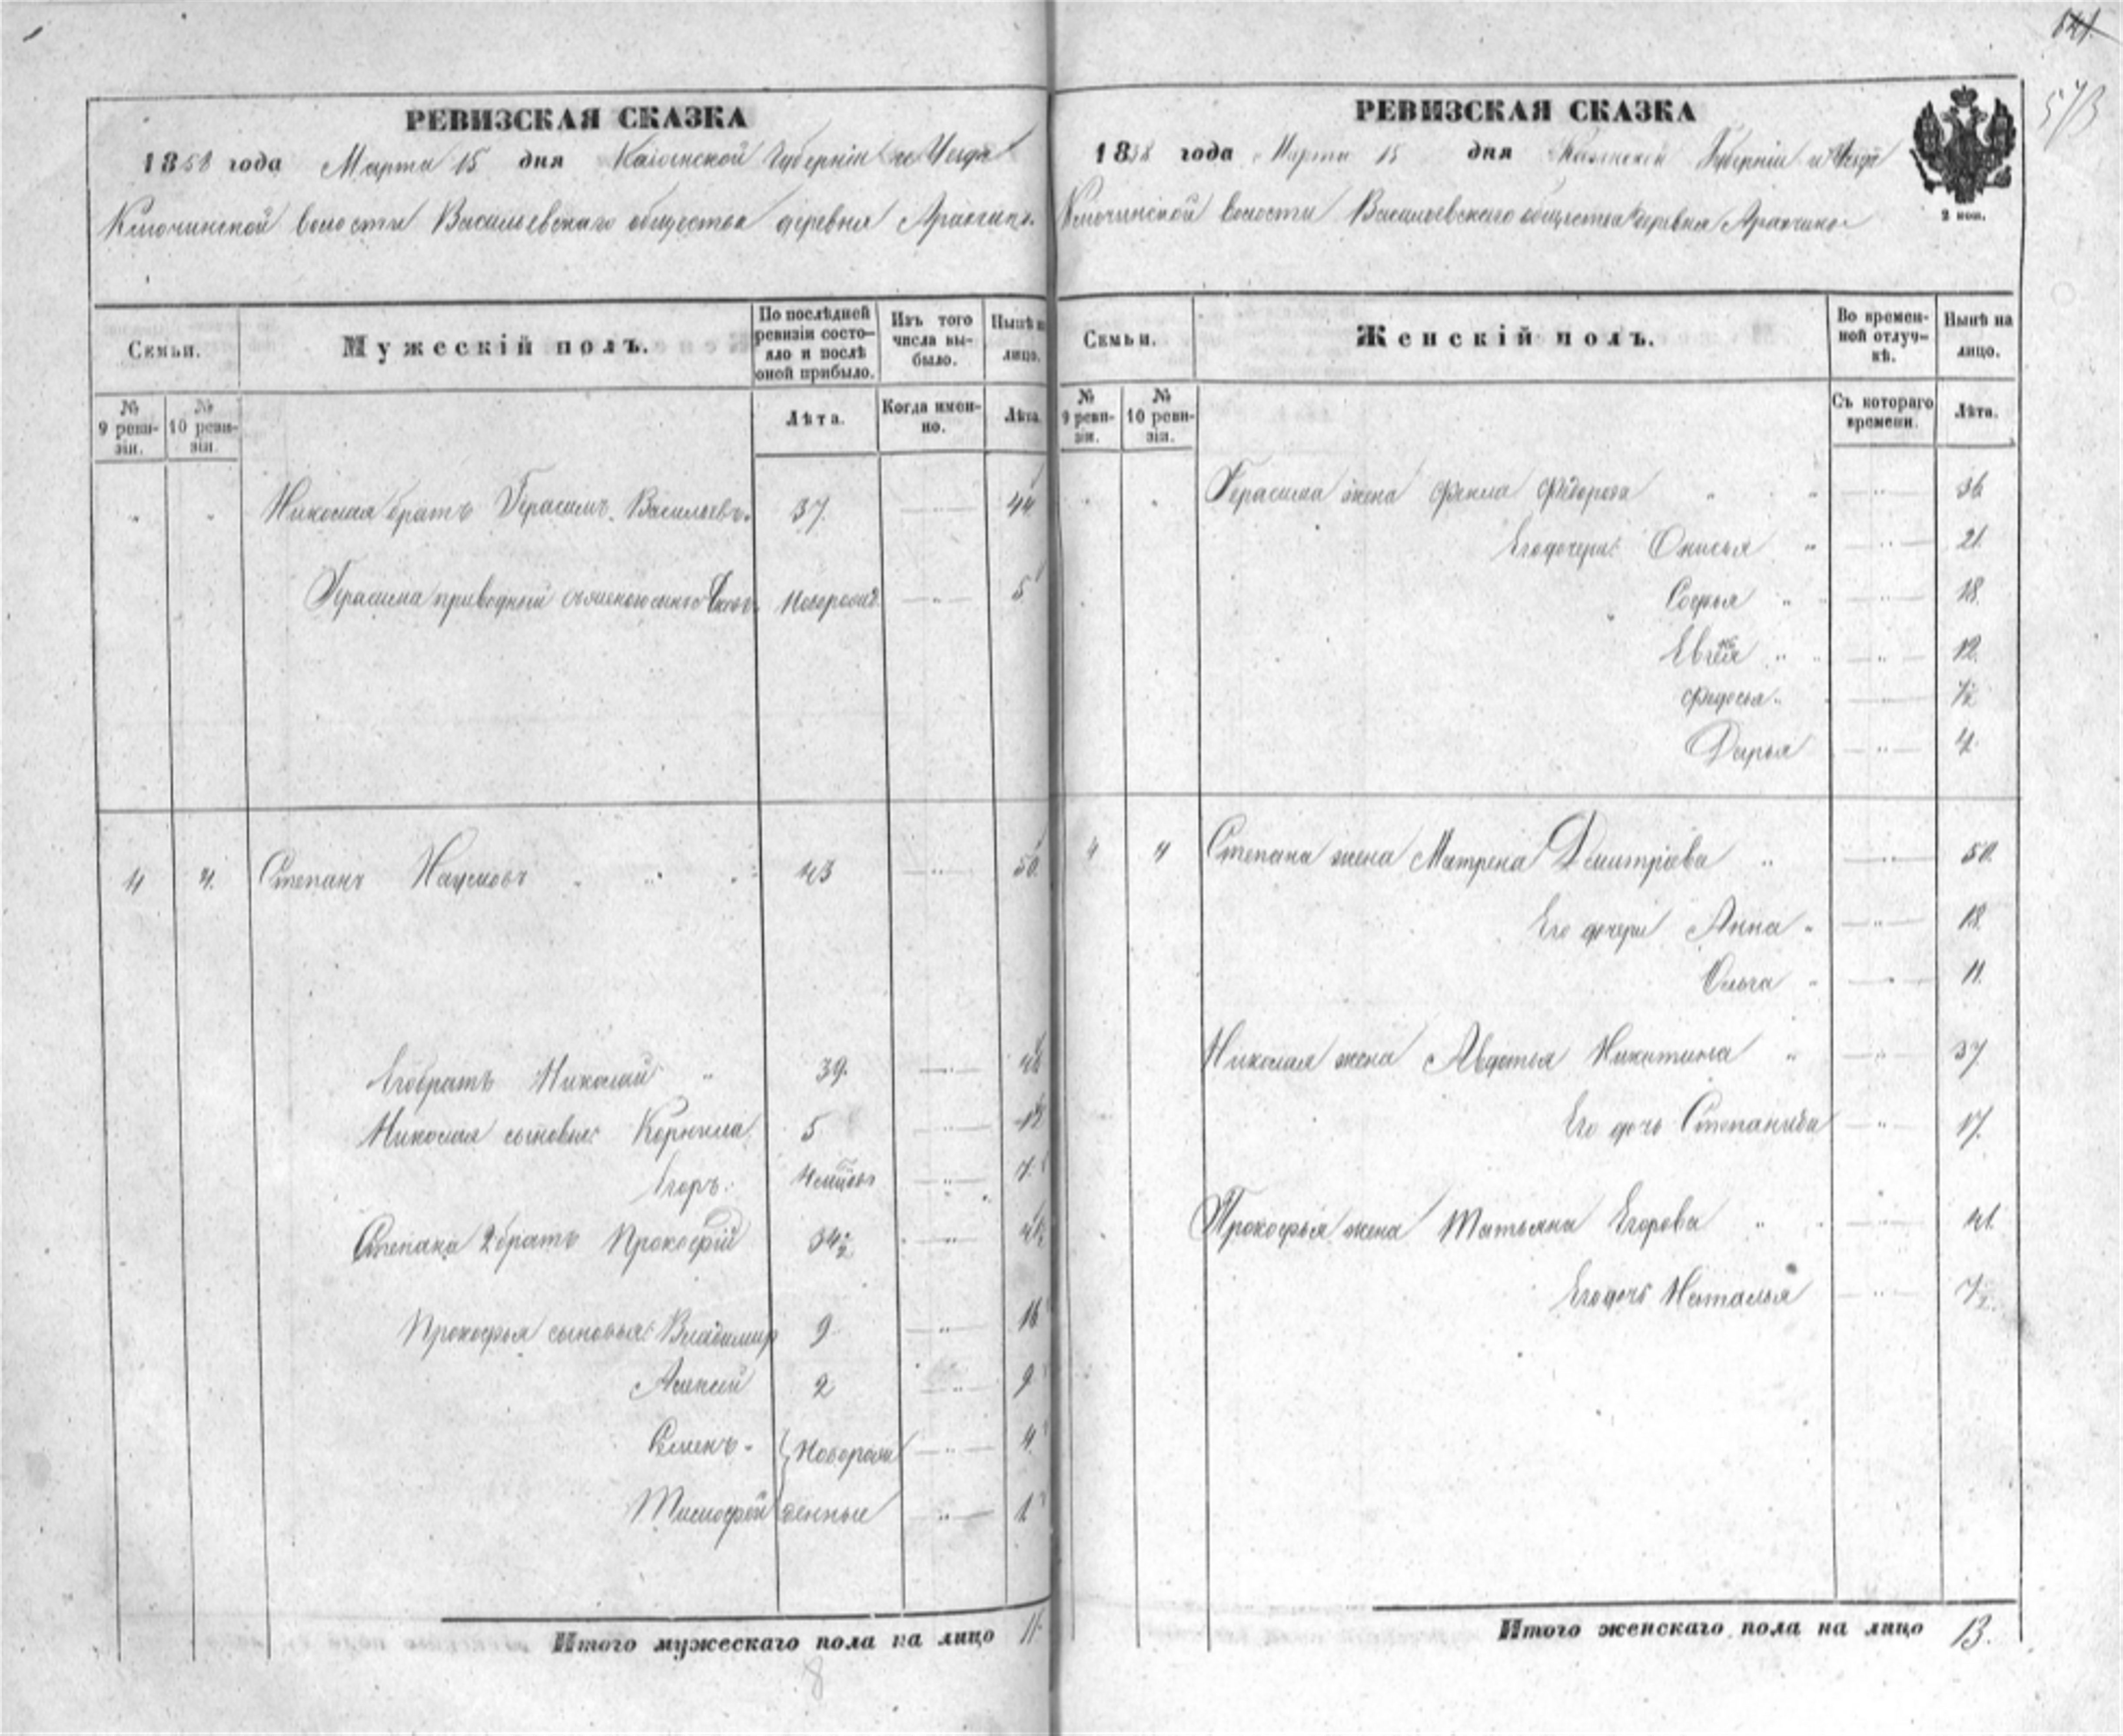 541
573
РЕВИЗСКАЯ СКАЗКА
1858 года Марта 15 дня Казанской Губерніи и Уезда
Ключинской волости Васильевскаго общества деревня Аракчино
Семьи.
Мужескій полъ.
По послѣдней ревизіи состояло и послѣ оной прибыло.
Изъ того числа выбыло.
Нынѣ на лицо.
№ 9 ревизіи.
№ 10 ревизіи.
Лѣта.
Когда именно.
Лѣта.
Николая братъ Герасимъ Васильевъ 37. 44
Герасима приводный сынъ новорожд. 5
4 4. Степанъ Наумовъ 43 50.
Его братъ Николай 39. 46
Николая сыновья: Корнила 5 12
Егоръ. 7.
Степана 2 братъ Прокофій 34½ 41½
Прокофья сыновья: Владимир 9 16
Алексей 2 9
Семенъ 4
Новорож
Тимофей денные 1
Итого мужескаго пола на лицо 11.
8
РЕВИЗСКАЯ СКАЗКА
1858 года Марта 15 дня Казанской Губерніи и Уезда
Ключинской волости Васильевскаго общества деревня Аракчино
2 коп.
Семьи.
Женскій полъ.
Во временной отлучкѣ.
Нынѣ на лицо.
№ 9 ревизіи.
№ 10 ревизіи.
Съ котораго времени.
Лѣта.
Герасима жена Фекла Федорова 36
Его дочери: Онисья 21.
Софья 18.
12.
Федосья 7½
Дарья 4.
4 4 Степана жена Матрена Дмитріева 50.
Его дочери Анна 18.
Ольга 11.
Николая жена Авдотья Никитина 37
Его дочь Степанида 17.
Прокофья жена Татьяна Егорова 41.
Его дочь Наталья 7½
Итого женскаго пола на лицо 13.